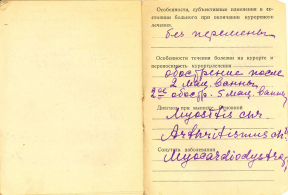 Особенности, субъективные изменения в со-
стоянии больного при окончании курортного
лечения
без перемены
Особенности течения болезни на курорте и
переносимость курортлечения
обострение после
2 мац. ванны
2ое обостр. 5 мац. ванны
Диагноз при выписке: Основной
Myositis chr.
Arthritismus ch.
Сопутств. заболевания
Myocardiodystro